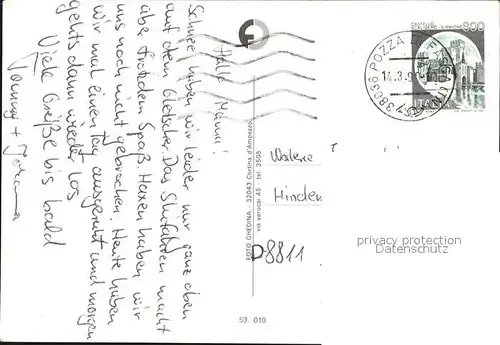 Hallo Meinu!
Schnee haben wir leider nur ganz oben
auf dem Gletscher. Das Skifahren macht
aber trotzdem Spaß. Haxen haben wir
uns noch nicht gebrochen. Heute haben
wir mal einen Tag ausgeruht und morgen
gehts dann wieder los
Viele Grüße bis bald
Tommy +
FOTO GHEDINA - 32043 Cortina d'Ampezzo
via verocai 45 - tel. 3505
53. 010
800
38036 POZZA DI FASSA (TN)
14.3.9
Hinden
D8811
privacy protection
Datenschutz